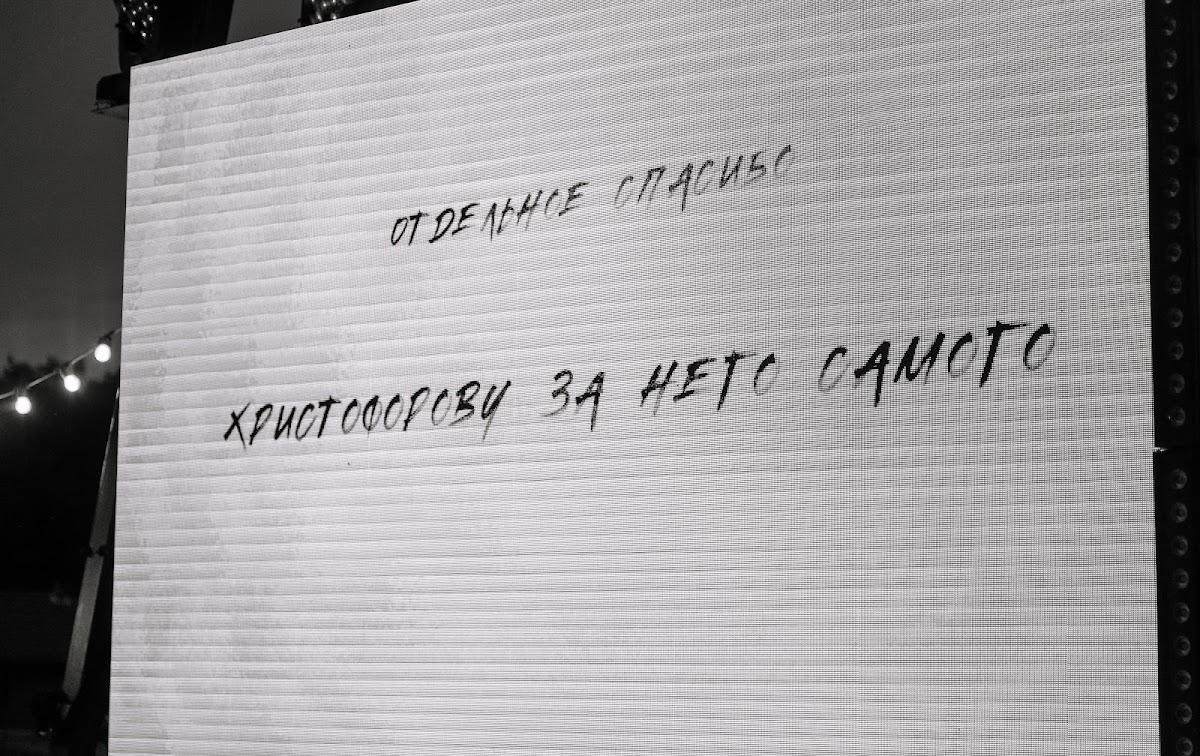 ОТДЕЛЬНОЕ СПАСИБО
ХРИСТОФОРОВУ ЗА НЕГО САМОГО